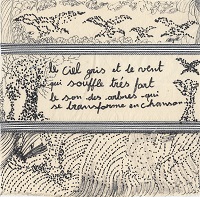 le ciel gris et le vent
qui souffle très fort
le son des arbres qui
se transforme en chanson